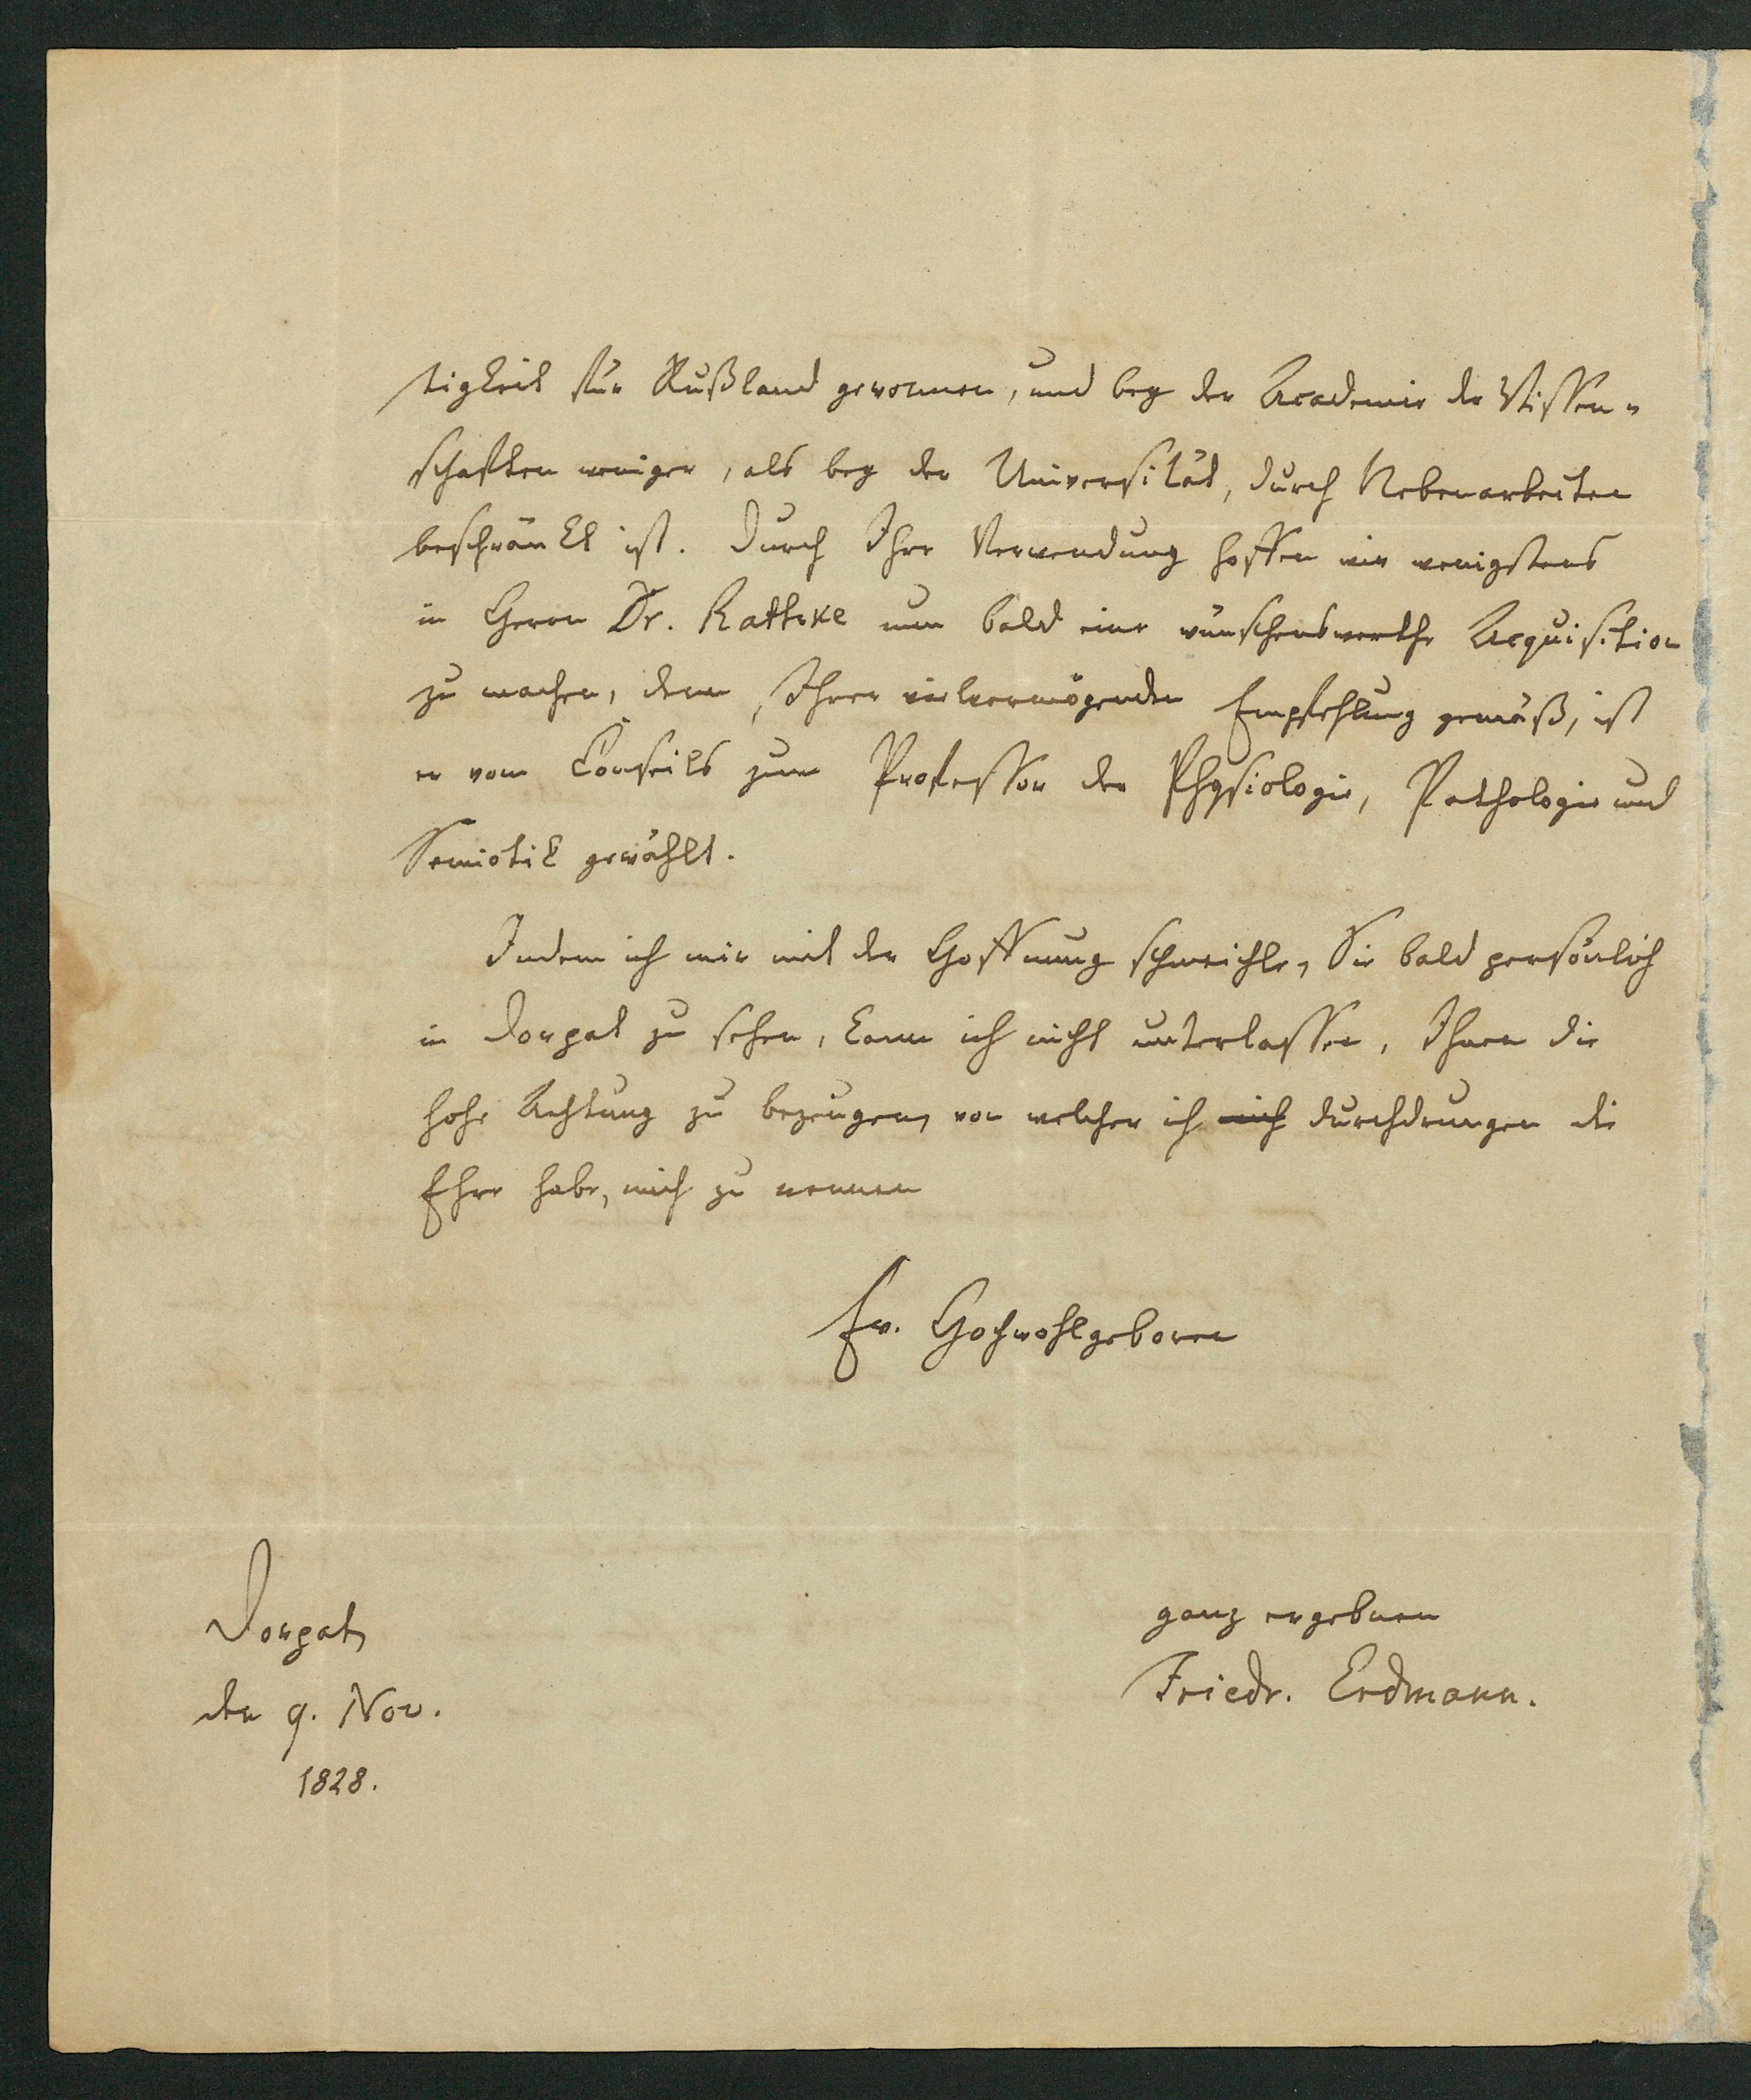 tigkeit für Rußland gewonnen, und bey der Academie der Wissen-
schaften weniger, als bey der Universität, durch Nebenarbeiten
beschränkt ist. Durch Ihre Verwendung hoffen wir wenigstens
in Herrn Dr. Rathke nun bald eine wünschenswerthe Acquisition
zu machen, denn, Ihrer vielvermögenden Empfehlung gemäß, ist
er vom Conseils zum Professor der Physiologie, Pathologie und
Semiotik gewählt.
Indem ich mir mit der Hoffnung schmeichle, Sie bald persönlich
in Dorpat zu sehen, kann ich nicht unterlassen, Ihnen die
hohe Achtung zu bezeugen, von welcher ich mich durchdrungen die
Ehre habe, mich zu nennen
Ew. Hochwohlgeboren
ganz ergebnen
Friedr. Erdmann.
Dorpat,
den 9. Nov.
1828.